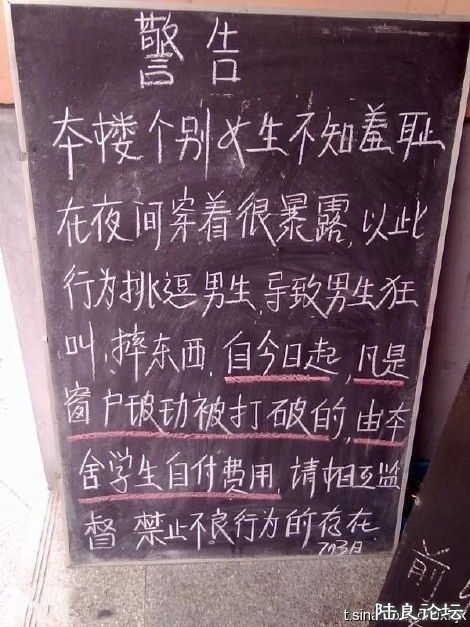 警告
本楼个别女生不知羞耻
在夜间穿着很暴露,以此
行为挑逗男生,导致男生狂
叫,摔东西,自今日起,凡是
窗户玻璃被打破的,由本
舍学生自付费用,请相互监
督 禁止不良行为的存在
前
陆良论坛